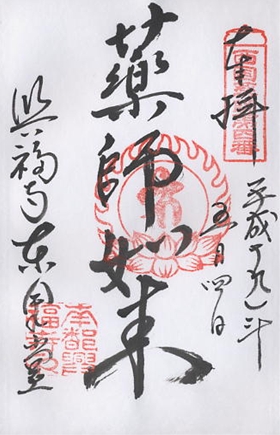 奉拝
平成十九年
五月四日
藥師如来
興福寺東金堂
南都興
福寺